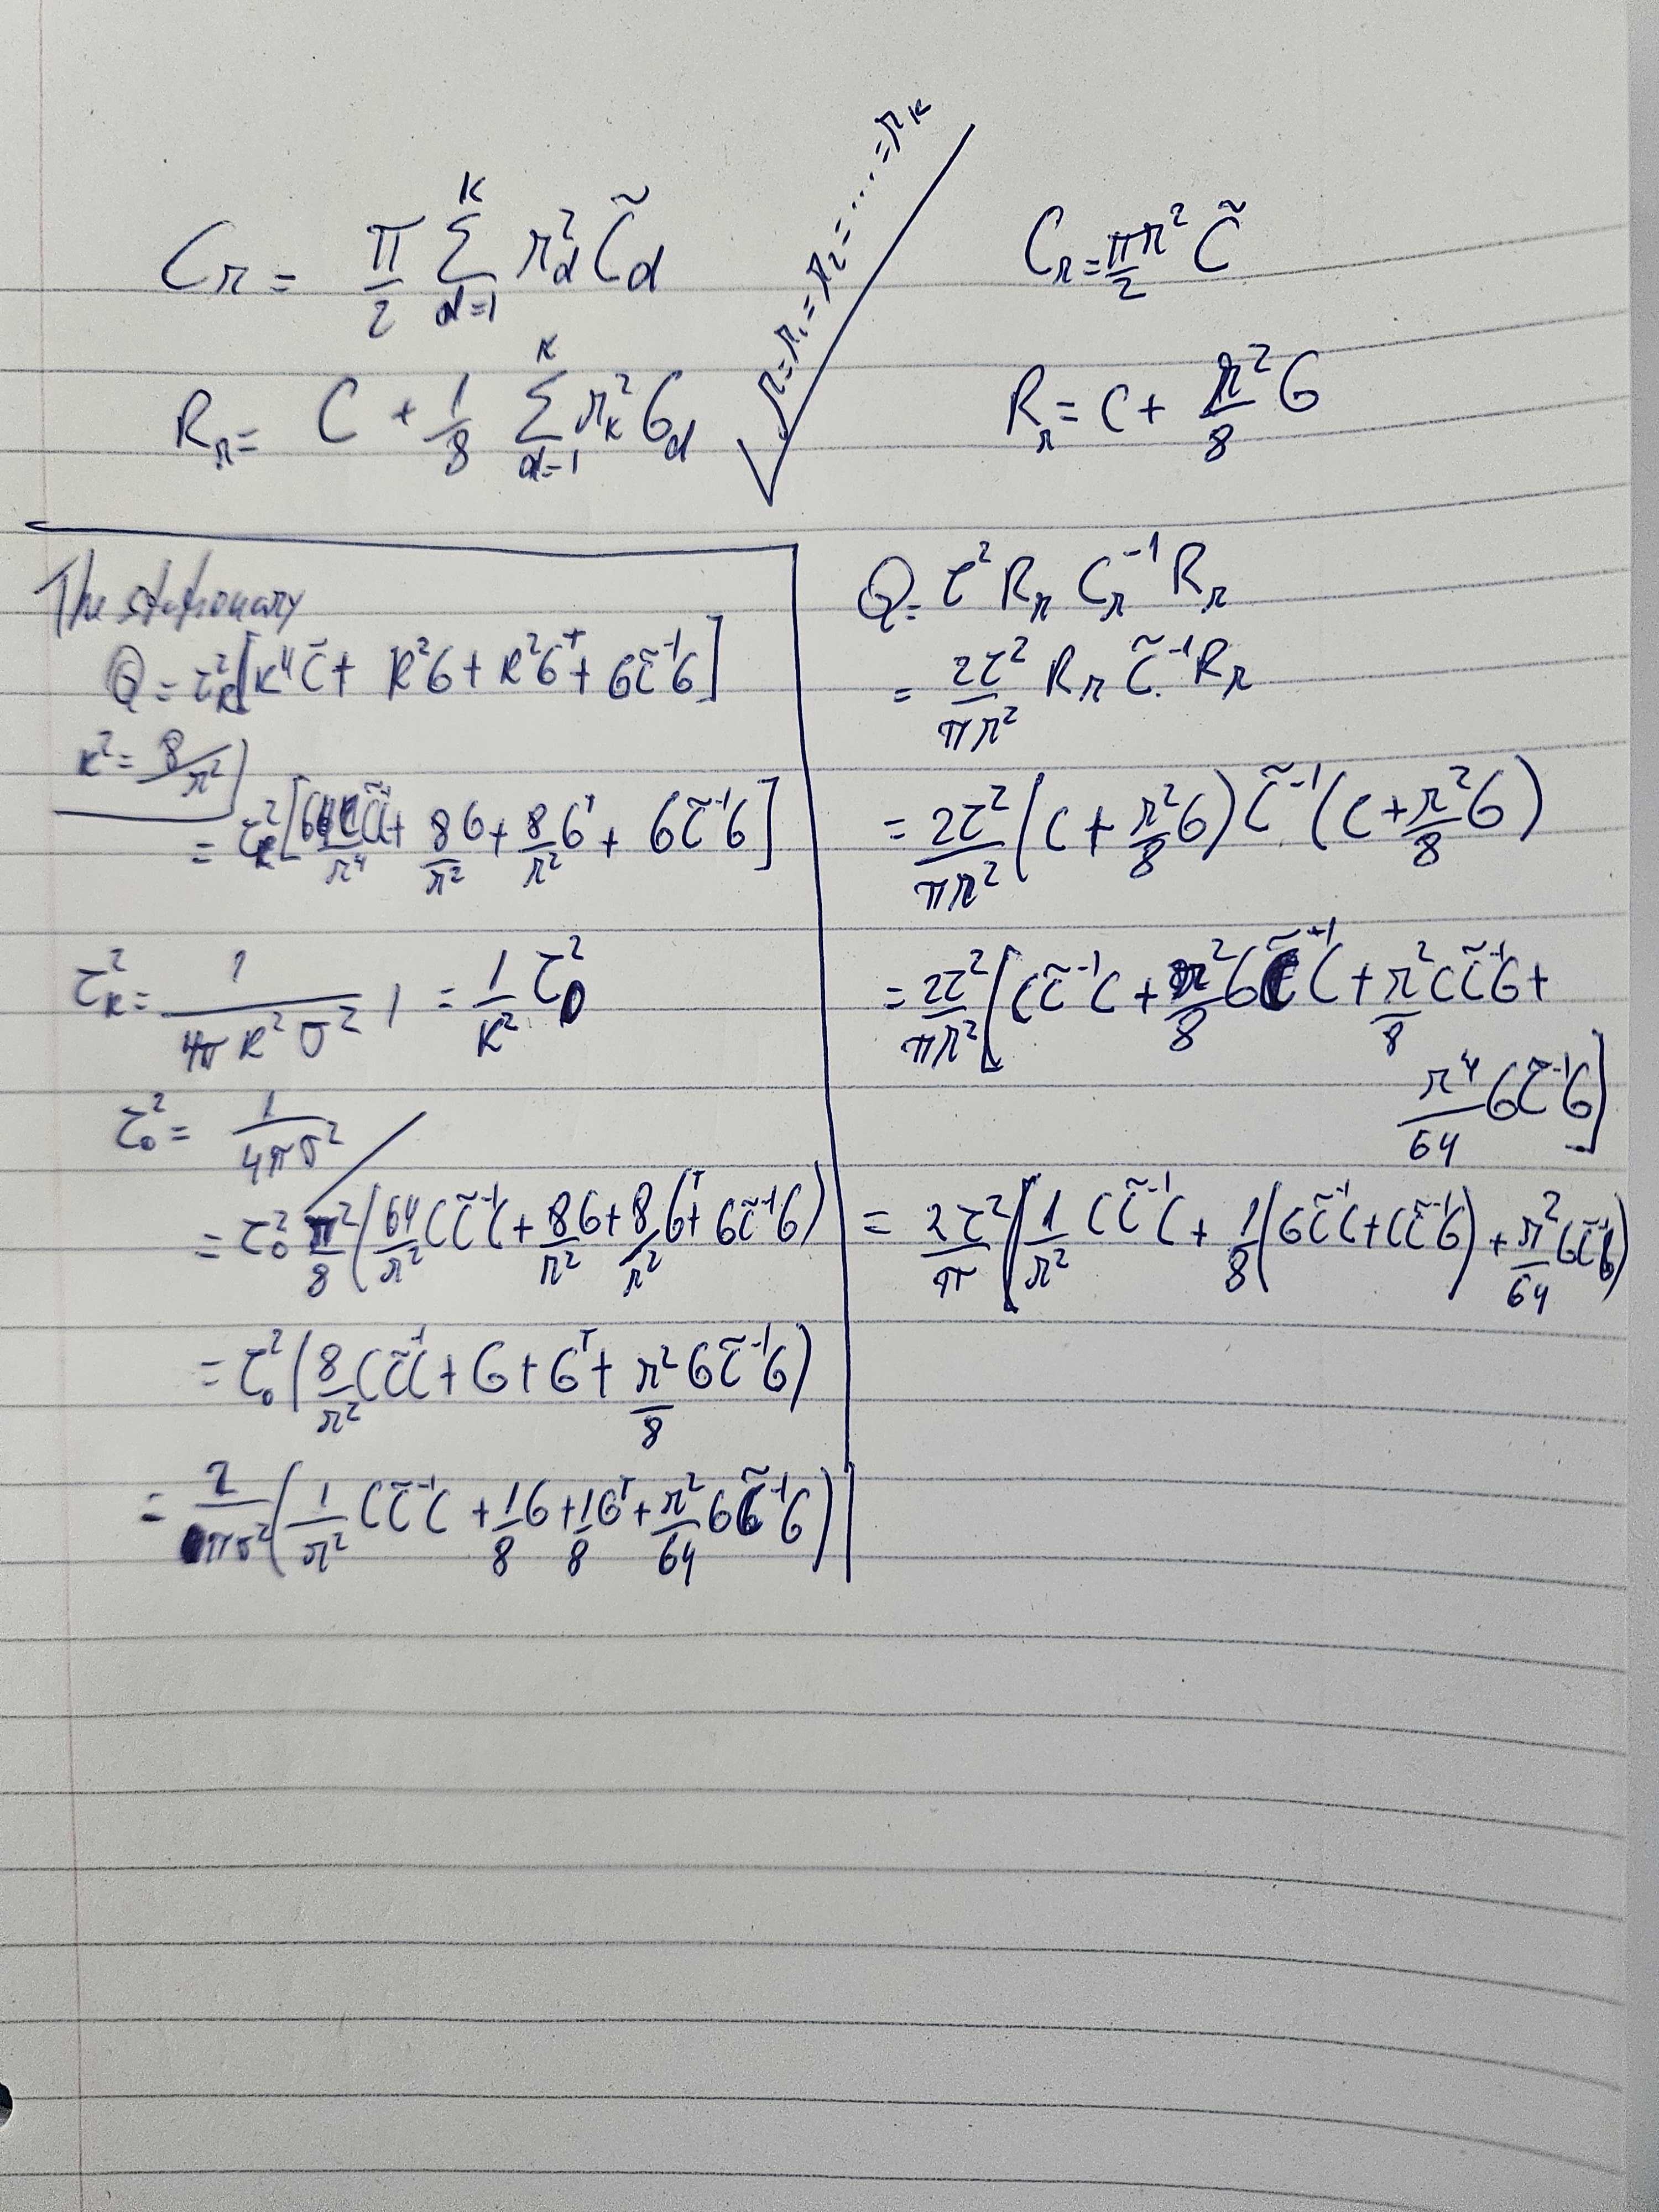 C_r = π/2 Σ_{d=1}^{K} r_d^2 C̃_d
R_r = C + 1/8 Σ_{d=1}^{K} r_k^2 G_d
r = r_1 = r_2 = .... = r_K
C_r = π/2 r^2 C̃
R_r = C + r^2/8 G
The stationary
Q = τ_K^2 [K^4 C̃ + K^2 G + K^2 G^T + G C̃^{-1} G]
K^2 = 8/r^2
= τ_K^2 [64/r^4 C̃ + 8/r^2 G + 8/r^2 G^T + G C̃^{-1} G]
τ_K^2 = 1/(4π K^2 σ^2), = 1/K^2 τ_0^2
τ_0^2 = 1/(4πσ^2)
= τ_0^2 r^2/8 (64/r^2 C C̃^{-1} C + 8/r^2 G + 8/r^2 G^T + G C̃^{-1} G)
= τ_0^2 (8/r^2 C C̃^{-1} C + G + G^T + r^2/8 G C̃^{-1} G)
= 2/(πσ^2) (1/r^2 C C̃^{-1} C + 1/8 G + 1/8 G^T + r^2/64 G C̃^{-1} G)
Q = τ^2 R_r C_r^{-1} R_r
= 2τ^2/(πr^2) R_r C̃^{-1} R_r
= 2τ^2/(πr^2) (C + r^2/8 G) C̃^{-1} (C + r^2/8 G)
= 2τ^2/(πr^2) [C C̃^{-1} C + r^2/8 G C̃^{-1} C + r^2/8 C C̃^{-1} G +
r^4/64 G C̃^{-1} G]
= 2τ^2/π (1/r^2 C C̃^{-1} C + 1/8 (G C̃^{-1} C + C C̃^{-1} G) + r^2/64 G C̃^{-1} G)